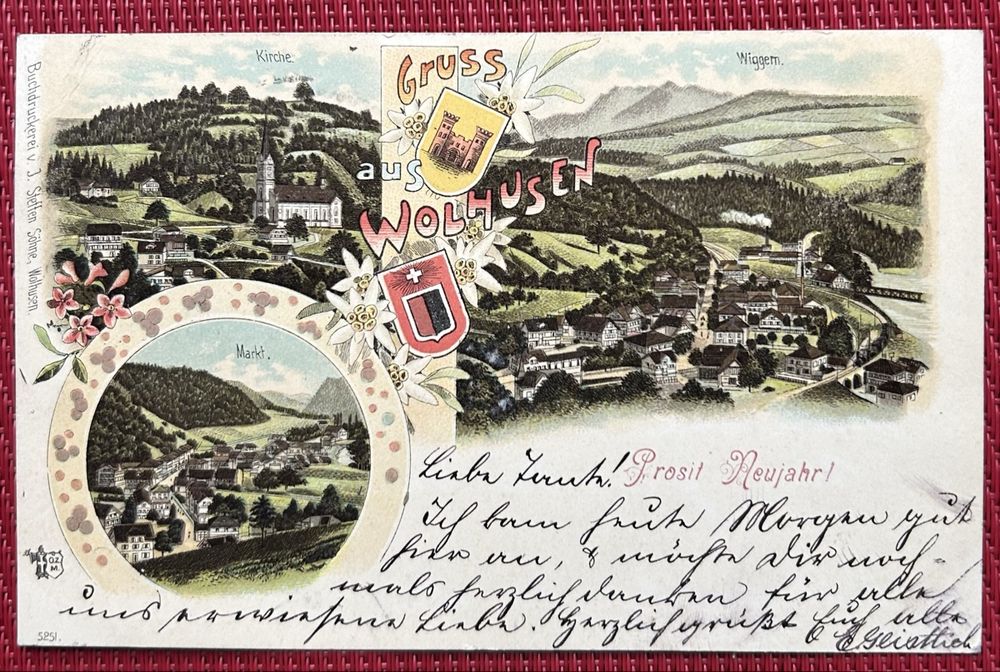 Kirche.
GRUSS
Wiggern.
aus
WOLHUSEN
Buchdruckerei v. J. Steffen Söhne, Wolhusen.
Markt.
Prosit Neujahr!
Liebe Tante!
Ich kam heute Morgen gut
hier an, & möchte Dir noch-
mals herzlich danken für alle
uns erwiesene Liebe. Herzlich grüßt Euch alle
O.Z.
M.
5251.